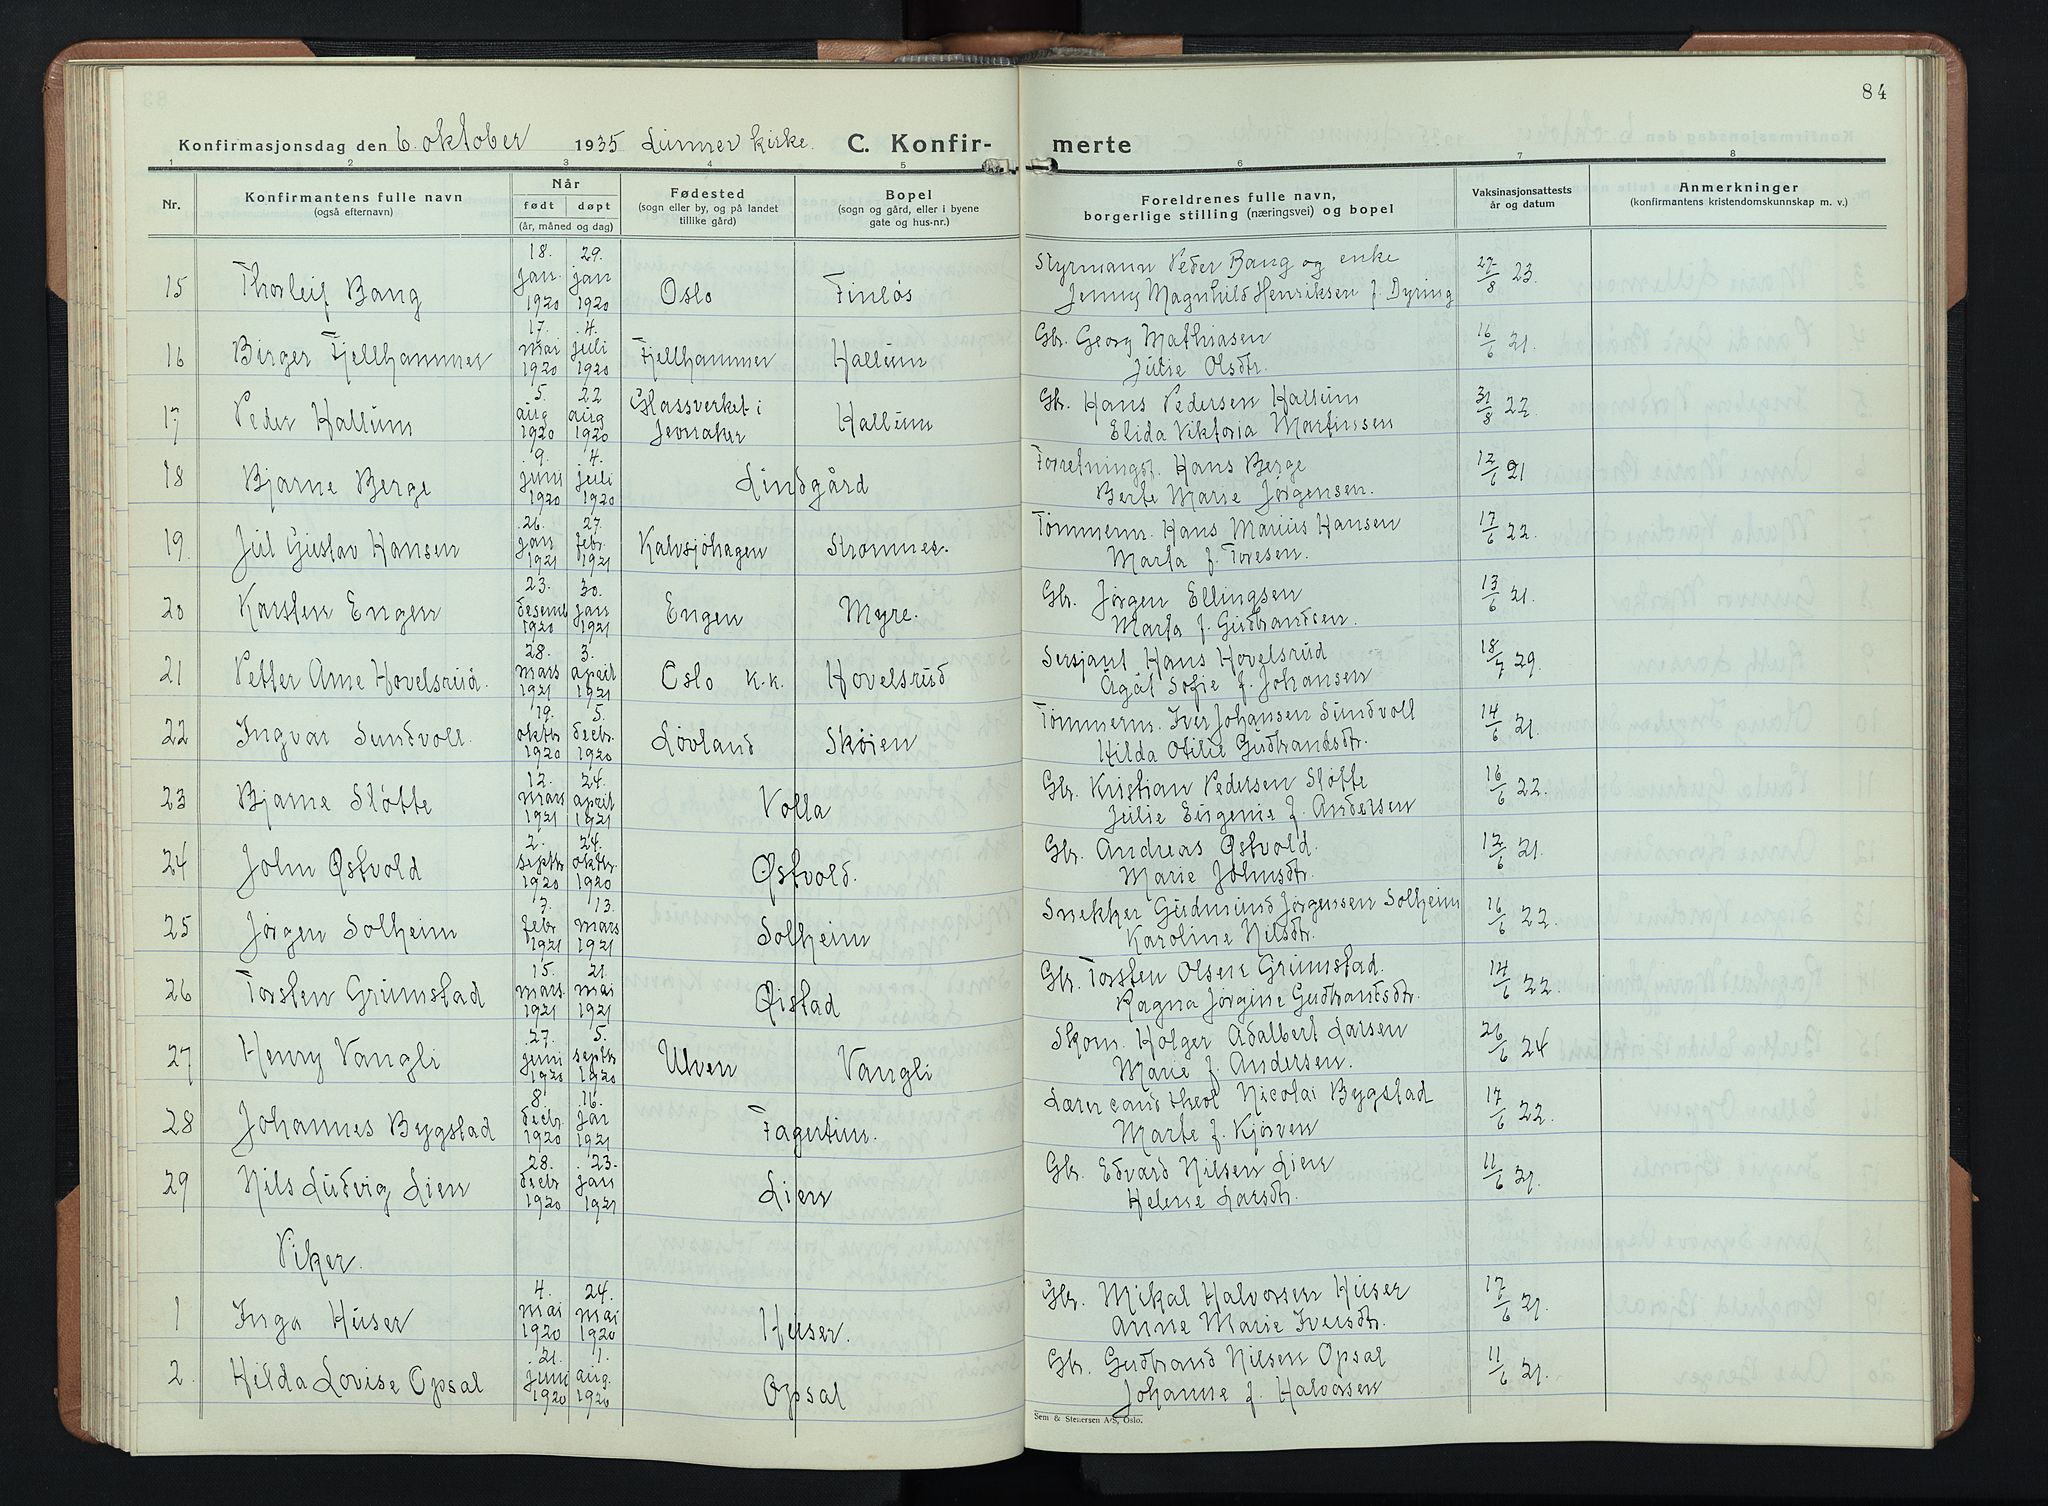 84
Konfirmasjonsdag den 6. oktober 1935 Lunner kirke. C. Konfir- merte
1 2 3 4 5 6 7 8
Nr. Konfirmantens fulle navn (også efternavn) Når født døpt (år, måned og dag) Fødested (sogn eller by, og på landet tillike gård) Bopel (sogn og gård, eller i byene gate og hus-nr.) Foreldrenes fulle navn, borgerlige stilling (næringsvei) og bopel Vaksinasjonsattests år og datum Anmerkninger (konfirmantens kristendomskunnskap m. v.)
15 Thorleif Bang 18. jan. 1920 29. jan 1920 Oslo Finløs Styrmann Peder Bang og enke Jenny Magnhild Henriksen f. Dyring 27/8 23.
16 Birger Fjellhammer 17. mai 1920 4. juli 1920 Fjellhammer Hallum Gbr. Georg Mathiasen Julie Olsdtr. 16/6 21.
17 Peder Hallum 5. aug 1920 22 aug 1920 Glassverket i Jevnaker Hallum Gbr. Hans Pedersen Hallum Elida Viktoria Martinsen 31/8 22.
18 Bjarne Berge 9. juni 1920 4. juli 1920 Lindgård Forretningsf. Hans Berge Berte Marie Jørgensen. 12/6 21
19. Jul Gustav Hansen 26. jan 1921 27. febr. 1921 Kalvsjøhagen Strømnes. Tømmerm. Hans Marius Hansen Marta f. Toresen. 17/6 22.
20 Karsten Engen 23. desemb 1920 30. jan 1921 Engen Myre. Gbr. Jørgen Ellingsen Marta f. Gudbrandsen. 13/6 21.
21 Petter Arne Hovelsrud. 28. mars 1921 3. april 1921 Oslo k.k. Hovelsrud Sersjant Hans Hovelsrud Ågåt Sofie f. Johansen 18/7 29.
22 Ingvar Sundvoll. 19. oktbr. 1920 5. decbr. 1920 Løvland Skøien Tømmerm. Iver Johansen Sundvoll Hilda Otilie Gudbrandsdtr. 14/6 21.
23 Bjarne Sløtte 12. mars 1921 24. april 1921 Volla Gbr. Kristian Pedersen Sløtte Julie Eugenie f. Andersen 16/6 22.
24 John Østvold 2. septbr 1920 24. oktbr. 1920 Østvold. Gbr. Andreas Østvold. Marie Johnsdtr. 12/6 21.
25 Jørgen Solheim 7. febr 1921 13. mars 1921 Solheim Snekker Gudmund Jørgensen Solheim Karoline Nilsdtr. 16/6 22.
26 Torsten Grimstad 15. mars. 1921 21. mai 1921 Øistad Gbr. Torsten Olsen Grimstad. Ragna Jørgine Gudbrandsdtr. 14/6 22.
27 Henry Vangli 27. juni 1920 5. septbr 1920 Ulven Vangli Skom. Holger Adalbert Larsen Marie f. Andersen. 26/6 24
28 Johannes Bygstad 8. decbr. 1920 16. jan 1921 Fagertun. Lærer cand theol Nicolai Bygstad Marte f. Kjørven 17/6 22.
29 Nils Ludvig Lien 28. decbr 1920 23. jan 1921 Lien Gbr. Edvard Nilsen Lien Helene Larsdtr. 11/6 21.
Viker.
1 Inga Huser 4. mai 1920 24. mai 1920 Huser. Gbr. Mikal Halvorsen Huser Anne Marie Iversdtr. 17/6 21.
2. Hilda Lovise Opsal 21. juni 1920 1. aug. 1920 Opsal Gbr. Gudbrand Nilsen Opsal Johanne f. Halvorsen 11/6 21.
Sem & Stenersen A/S, Oslo.